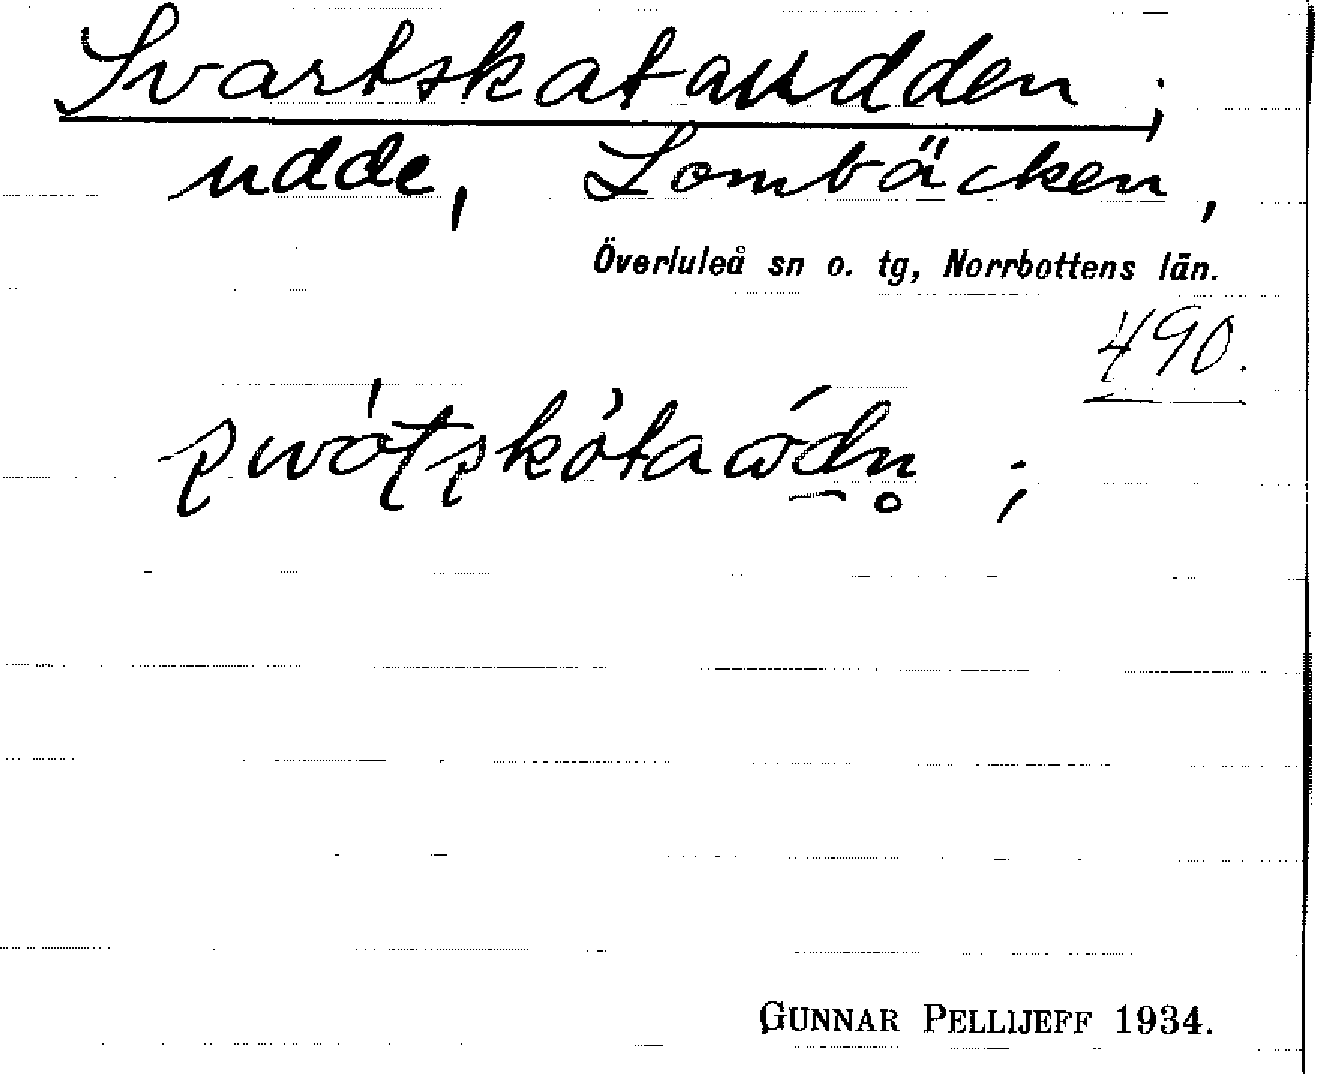 Svartskataudden;
udde, Lombäcken,
Överluleå sn o. tg, Norrbottens län.
490.
GUNNAR PELLIJEFF 1934.